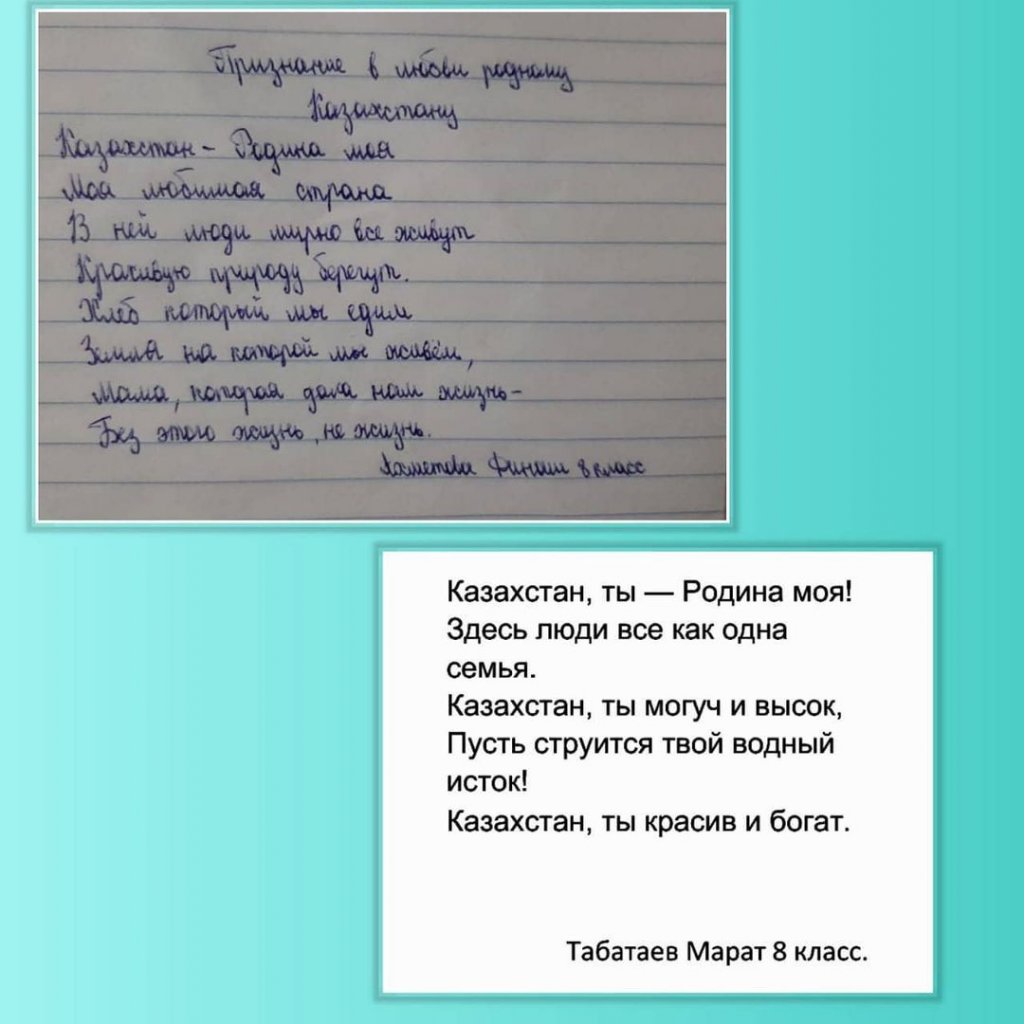 Признание в любви родному
Казахстану
Казахстан - Родина моя
Моя любимая страна
В ней люди мирно все живут
Красивую природу берегут.
Хлеб который мы едим
Земля на которой мы живём,
Мама, которая дала нам жизнь-
Без этого жизнь, не жизнь.
Ахметова 8 класс
Казахстан, ты — Родина моя!
Здесь люди все как одна
семья.
Казахстан, ты могуч и высок,
Пусть струится твой водный
исток!
Казахстан, ты красив и богат.
Табатаев Марат 8 класс.